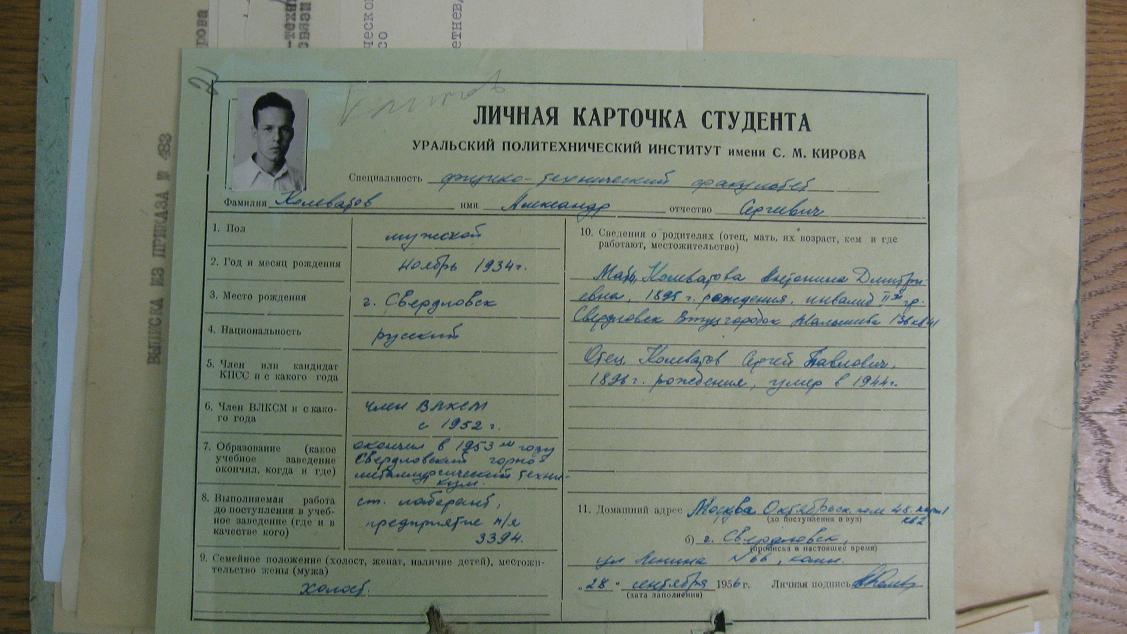 ЛИЧНАЯ КАРТОЧКА СТУДЕНТА
УРАЛЬСКИЙ ПОЛИТЕХНИЧЕСКИЙ ИНСТИТУТ имени С. М. КИРОВА
Специальность физико-технический факультет
Фамилия Колеватов имя Александр отчество Сергеевич
1. Пол мужской
2. Год и месяц рождения Ноябрь 1934г.
3. Место рождения г. Свердловск
4. Национальность русский
5. Член или кандидат
КПСС и с какого года
6. Член ВЛКСМ и с како-
го года
член ВЛКСМ
с 1952 г.
7. Образование (какое
учебное заведение
окончил, когда и где)
окончил в 1953 году
Свердловский горно
металлургический техни-
кум.
8. Выполняемая работа
до поступления в учеб-
ное заведение (где и в
качестве кого)
ст. лаборант,
предприятие п/я
3394.
9. Семейное положение (холост, женат, наличие детей), местожи-
тельство жены (мужа)
холост.
10. Сведения о родителях (отец, мать, их возраст, кем и где
работают, местожительство)
Мать, Колеватова Антонина Дмитри-
евна, рождения, инвалид II гр.
Свердловск Втузгородок Малышева
Отец, Колеватов Сергей Павлович,
рождения, умер в 1944г.
11. Домашний адрес Москва
(до поступления в вуз)
б) г. Свердловск,
(прописка в настоящее время)
ул Ленина №66, комн.
"28" сентября 1956 г. Личная подпись
(дата заполнения)
ВЫПИСКА ИЗ ПРИКАЗА № 483